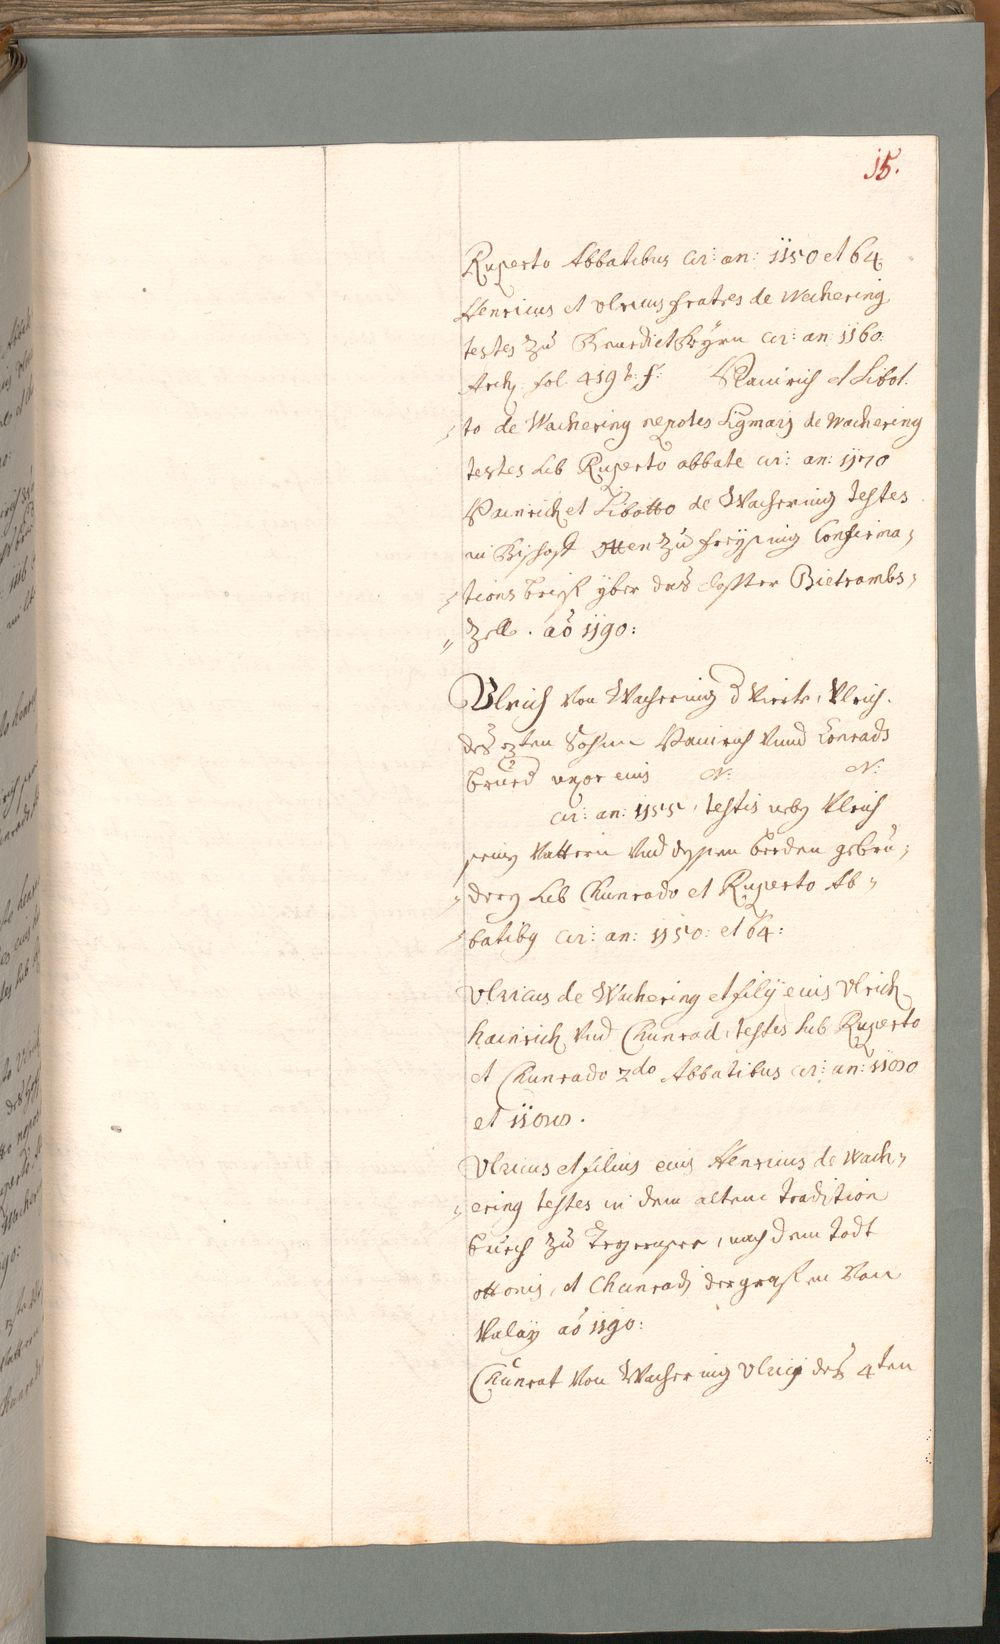 15.
Ruperto Abbatibus cir: an: 1150 et 64.
Henricus et Ulricus fratres de Wachering
testes zu Benedictbeyrn cir: an: 1160.
Arch: fol. 419 Hainrich et Sibot,
to de Wachering nepotes Sigmarj de Wachering
testes sub Ruperto abbate cir: an: 1170
Hainrich et Sibotto de Wachering testes
in Bischoff Otten zu Freysing Confirma,
tions brief yber das Closster Bietrambs,
Zell. aõ 1190:
Ulrich von Wachering d Viert, Ulrich
des 3ten Sohn Hainrich vnnd Conrads
Brued uxor eius N: N:
cir: an: 1155, testis neb Ulrich
seing Vattern vnd dessen beeden gebrü,
dern sub Chunrado et Ruperto Ab,
batib9 cir: an: 1150: et 64:
Ulricus de Wachering et filij eius Ulrich
Hainrich vnd Chunrad, testes sub Ruperto
et Chunrado 2do Abbatibus cir: an:
et
Ulricus et filius eius Henricus de Wach,
ering testes in dem altenn tradition
buech zu Tegernsee, nach dem Todt
ottonis, et Chunradj der grafen von
Valaÿ aõ 1190:
Chunrat von Wachering Ulricj des 4ten